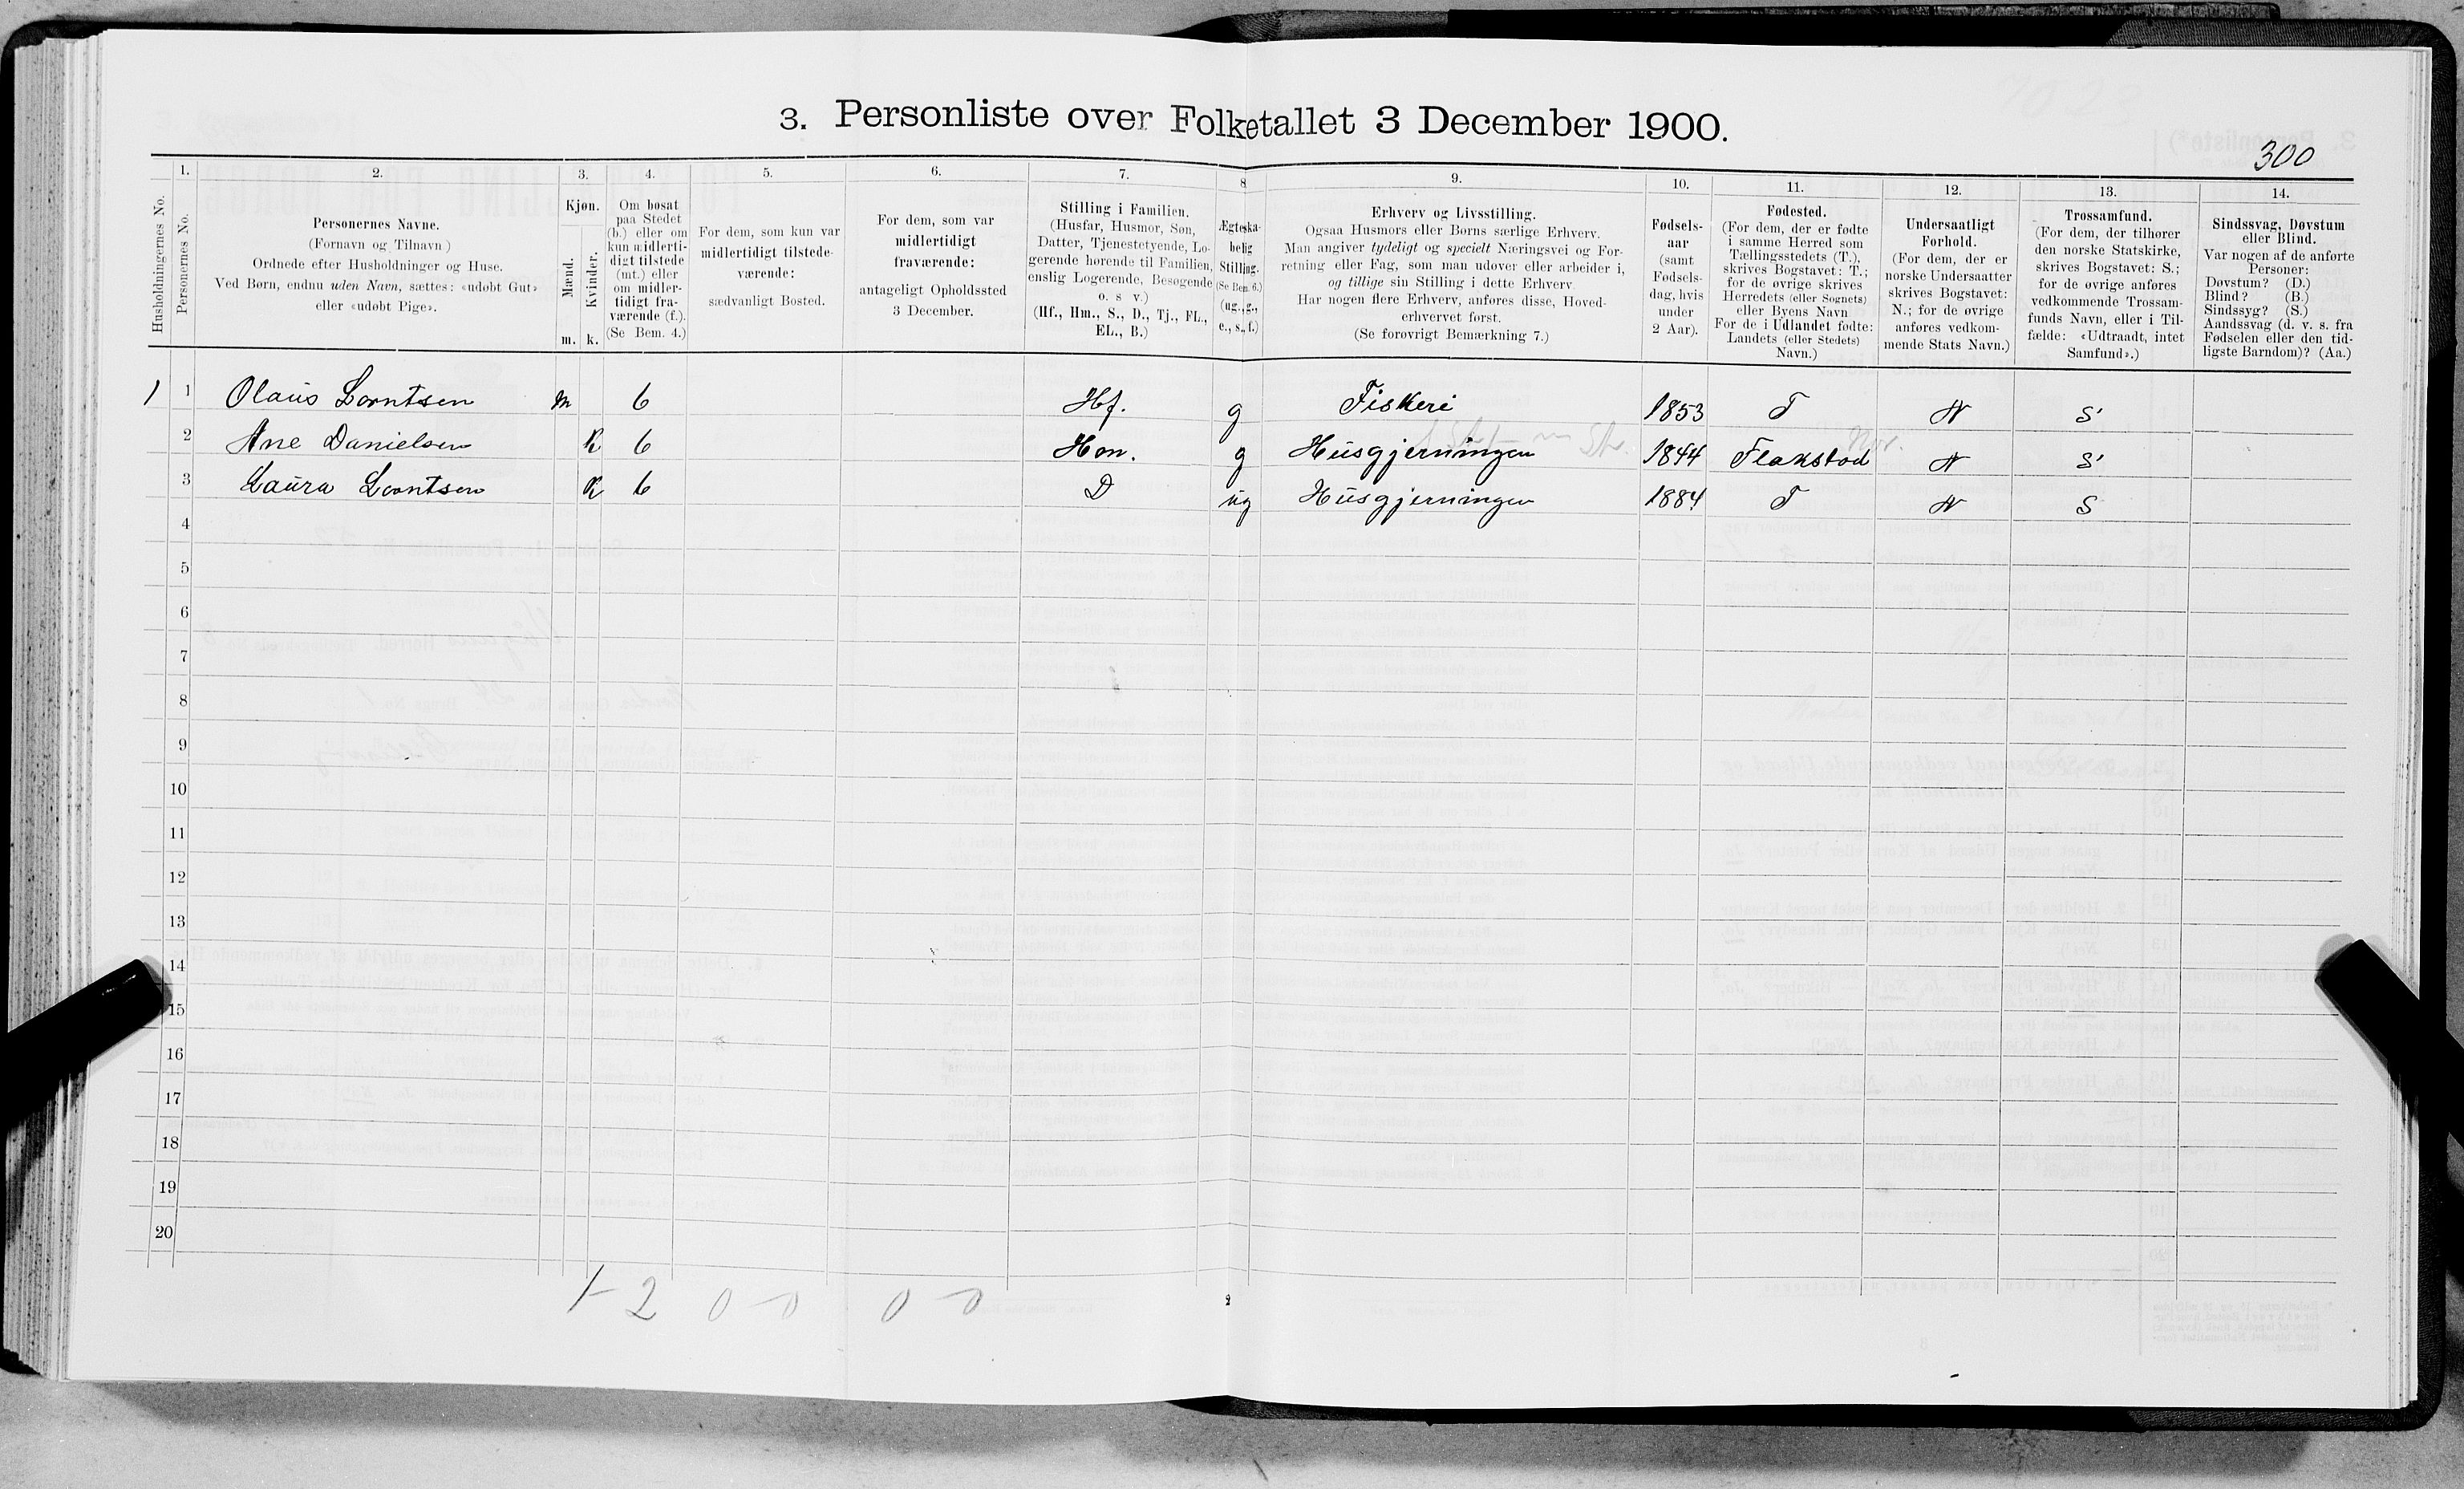 3. Personliste over Folketallet 3 December 1900.
300
Husholdningernes No.
1.
Personernes No.
2.
Personernes Navne.
(Fornavn og Tilnavn.)
Ordnede efter Husholdninger og Huse.
Ved Børn, endnu uden Navn, sættes: «udøbt Gut»
eller «udøbt Pige».
3.
Kjøn.
Mænd.
m.
Kvinder.
k.
4.
Om bosat
paa Stedet
(b.) eller om
kun midlerti-
digt tilstede
(mt.) eller
om midler-
tidigt fra-
værende (f.).
(Se Bem. 4.)
5.
For dem, som kun var
midlertidigt tilstede-
værende:
sædvanligt Bosted.
6.
For dem, som var
midlertidigt
fraværende:
antageligt Opholdssted
3 December.
7.
Stilling i Familien.
(Husfar, Husmor, Søn,
Datter, Tjenestetyende, Lo-
gerende hørende til Familien,
enslig Logerende, Besøgende
o. s v.)
(Hf., Hm., S., D., Tj., FL.,
EL., B.)
8
Ægteska-
belig
Stilling.
(Se Bem. 6.)
(ug., g.,
e., s., f.)
9.
Erhverv og Livsstilling.
Ogsaa Husmors eller Børns særlige Erhverv.
Man angiver tydeligt og specielt Næringsvei og For-
retning eller Fag, som man udøver eller arbeider i,
og tillige sin Stilling i dette Erhverv.
Har nogen flere Erhverv, anføres disse, Hoved-
erhvervet først.
(Se forøvrigt Bemærkning 7.)
10.
Fødsels-
aar
(samt
Fødsels-
dag, hvis
under
2 Aar).
11.
Fødested.
(For dem, der er fødte
i samme Herred som
Tællingsstedets (T.),
skrives Bogstavet: T.;
for de øvrige skrives
Herredets (eller Sognets)
eller Byens Navn
For de i Udlandet fødte:
Landets (eller Stedets)
Navn.)
12.
Undersaatligt
Forhold.
(For dem, der er
norske Undersaatter
skrives Bogstavet:
N.; for de øvrige
anføres vedkom-
mende Stats Navn.)
13.
Trossamfund.
(For dem, der tilhører
den norske Statskirke,
skrives Bogstavet: S.;
for de øvrige anføres
vedkommende Trossam-
funds Navn, eller i Til-
fælde: «Udtraadt, intet
Samfund».)
14.
Sindssvag, Døvstum
eller Blind.
Var nogen af de anførte
Personer:
Døvstum? (D.)
Blind? (B.)
Sindssyg? (S.)
Aandssvag (d. v. s. fra
Fødselen eller den tid-
ligste Barndom)? (Aa.)
1 1 Olaus Lorntsen m b Hf. g Fiskeri 1853 T N S
2 Ane Danielsen k b Hm. g Husgjerningen 1844 Flakstad N S
3 Laura Lorntsen k b D ug Husgjerningen 1884 T N S
4
5
6
7
8
9
10
11
12
13
14
15
16
17
18
19
20
1-2 0-0 0-0
2